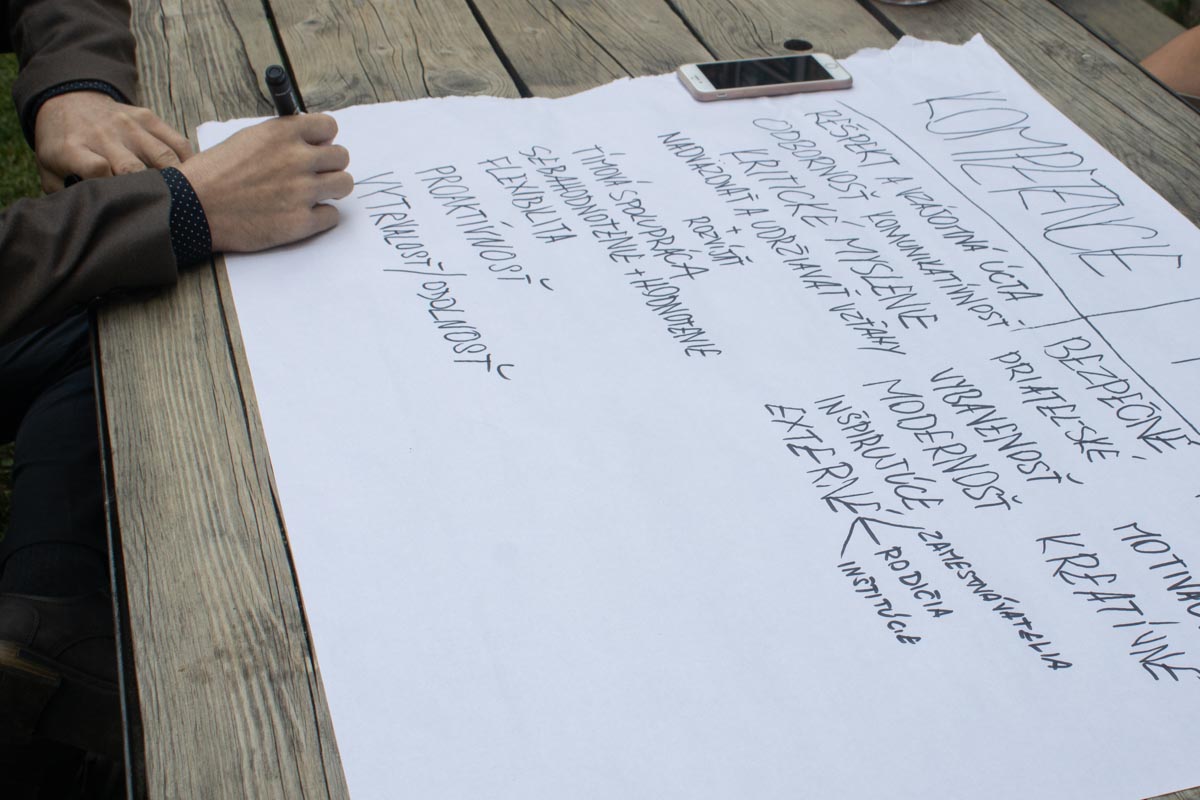 KOMPETENCIE
REŠPEKT A VZÁJOMNÁ ÚCTA -
ODBORNOSŤ KOMUNIKATÍVNOSŤ
KRITICKÉ MYSLENIE
NADVÄZOVAŤ A UDRŽIAVAŤ VZŤAHY
+
TÍMOVÁ SPOLUPRÁCA
SEBAHODNOTENIE + HODNOTENIE
FLEXIBLITA
PROAKTÍVNOSŤ
VYTRVALOSŤ/ODOLNOSŤ
BEZPEČNÉ
PRIATEĽSKÉ
VYBAVENOSŤ
MODERNOSŤ
INŠPIRUJÚCE
EXTERNÉ
ZAMESTNÁVATELIA
RODIČIA
INŠTITÚCIE
KREATÍVNE